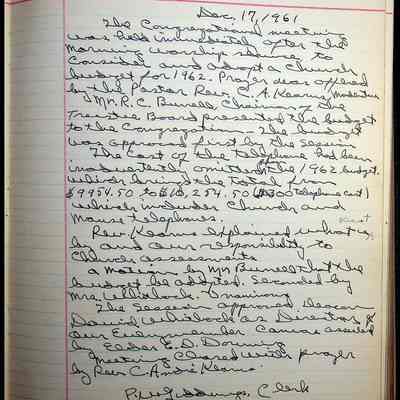 Dec. 17, 1961
The Congregational meeting
was held immediately after the
morning worship service to
consider and adopt a Church
budget for 1962. Prayer was offered
by the Pastor Rev. C. A. Kearns, Moderator
Mr. R. C. Burrell Chairman of the
Trustee Board presented the budget
to the Congregation - The budget
was approved first by the Session
The Cost of the telephone had been
inadvertently omitted from the 1962 budget.
which brings the total from
$9954.50 to $10,254.50 ($300 telephone cost)
which includes Church and
Manse telephones.
Rev. Kearns explained what is,
by and our responsibility to
Church assessments
a motion by Mr Burrell that the
budget be adopted. Seconded by
Mrs. Whitlock. Unanimous
The Session approved Deacon
David Whitlock as Director of
our Every member Canvas assisted
by Elder E. D. Downing
Meeting Closed with prayer
by Rev C. André Kearns.
Giddings, Clerk